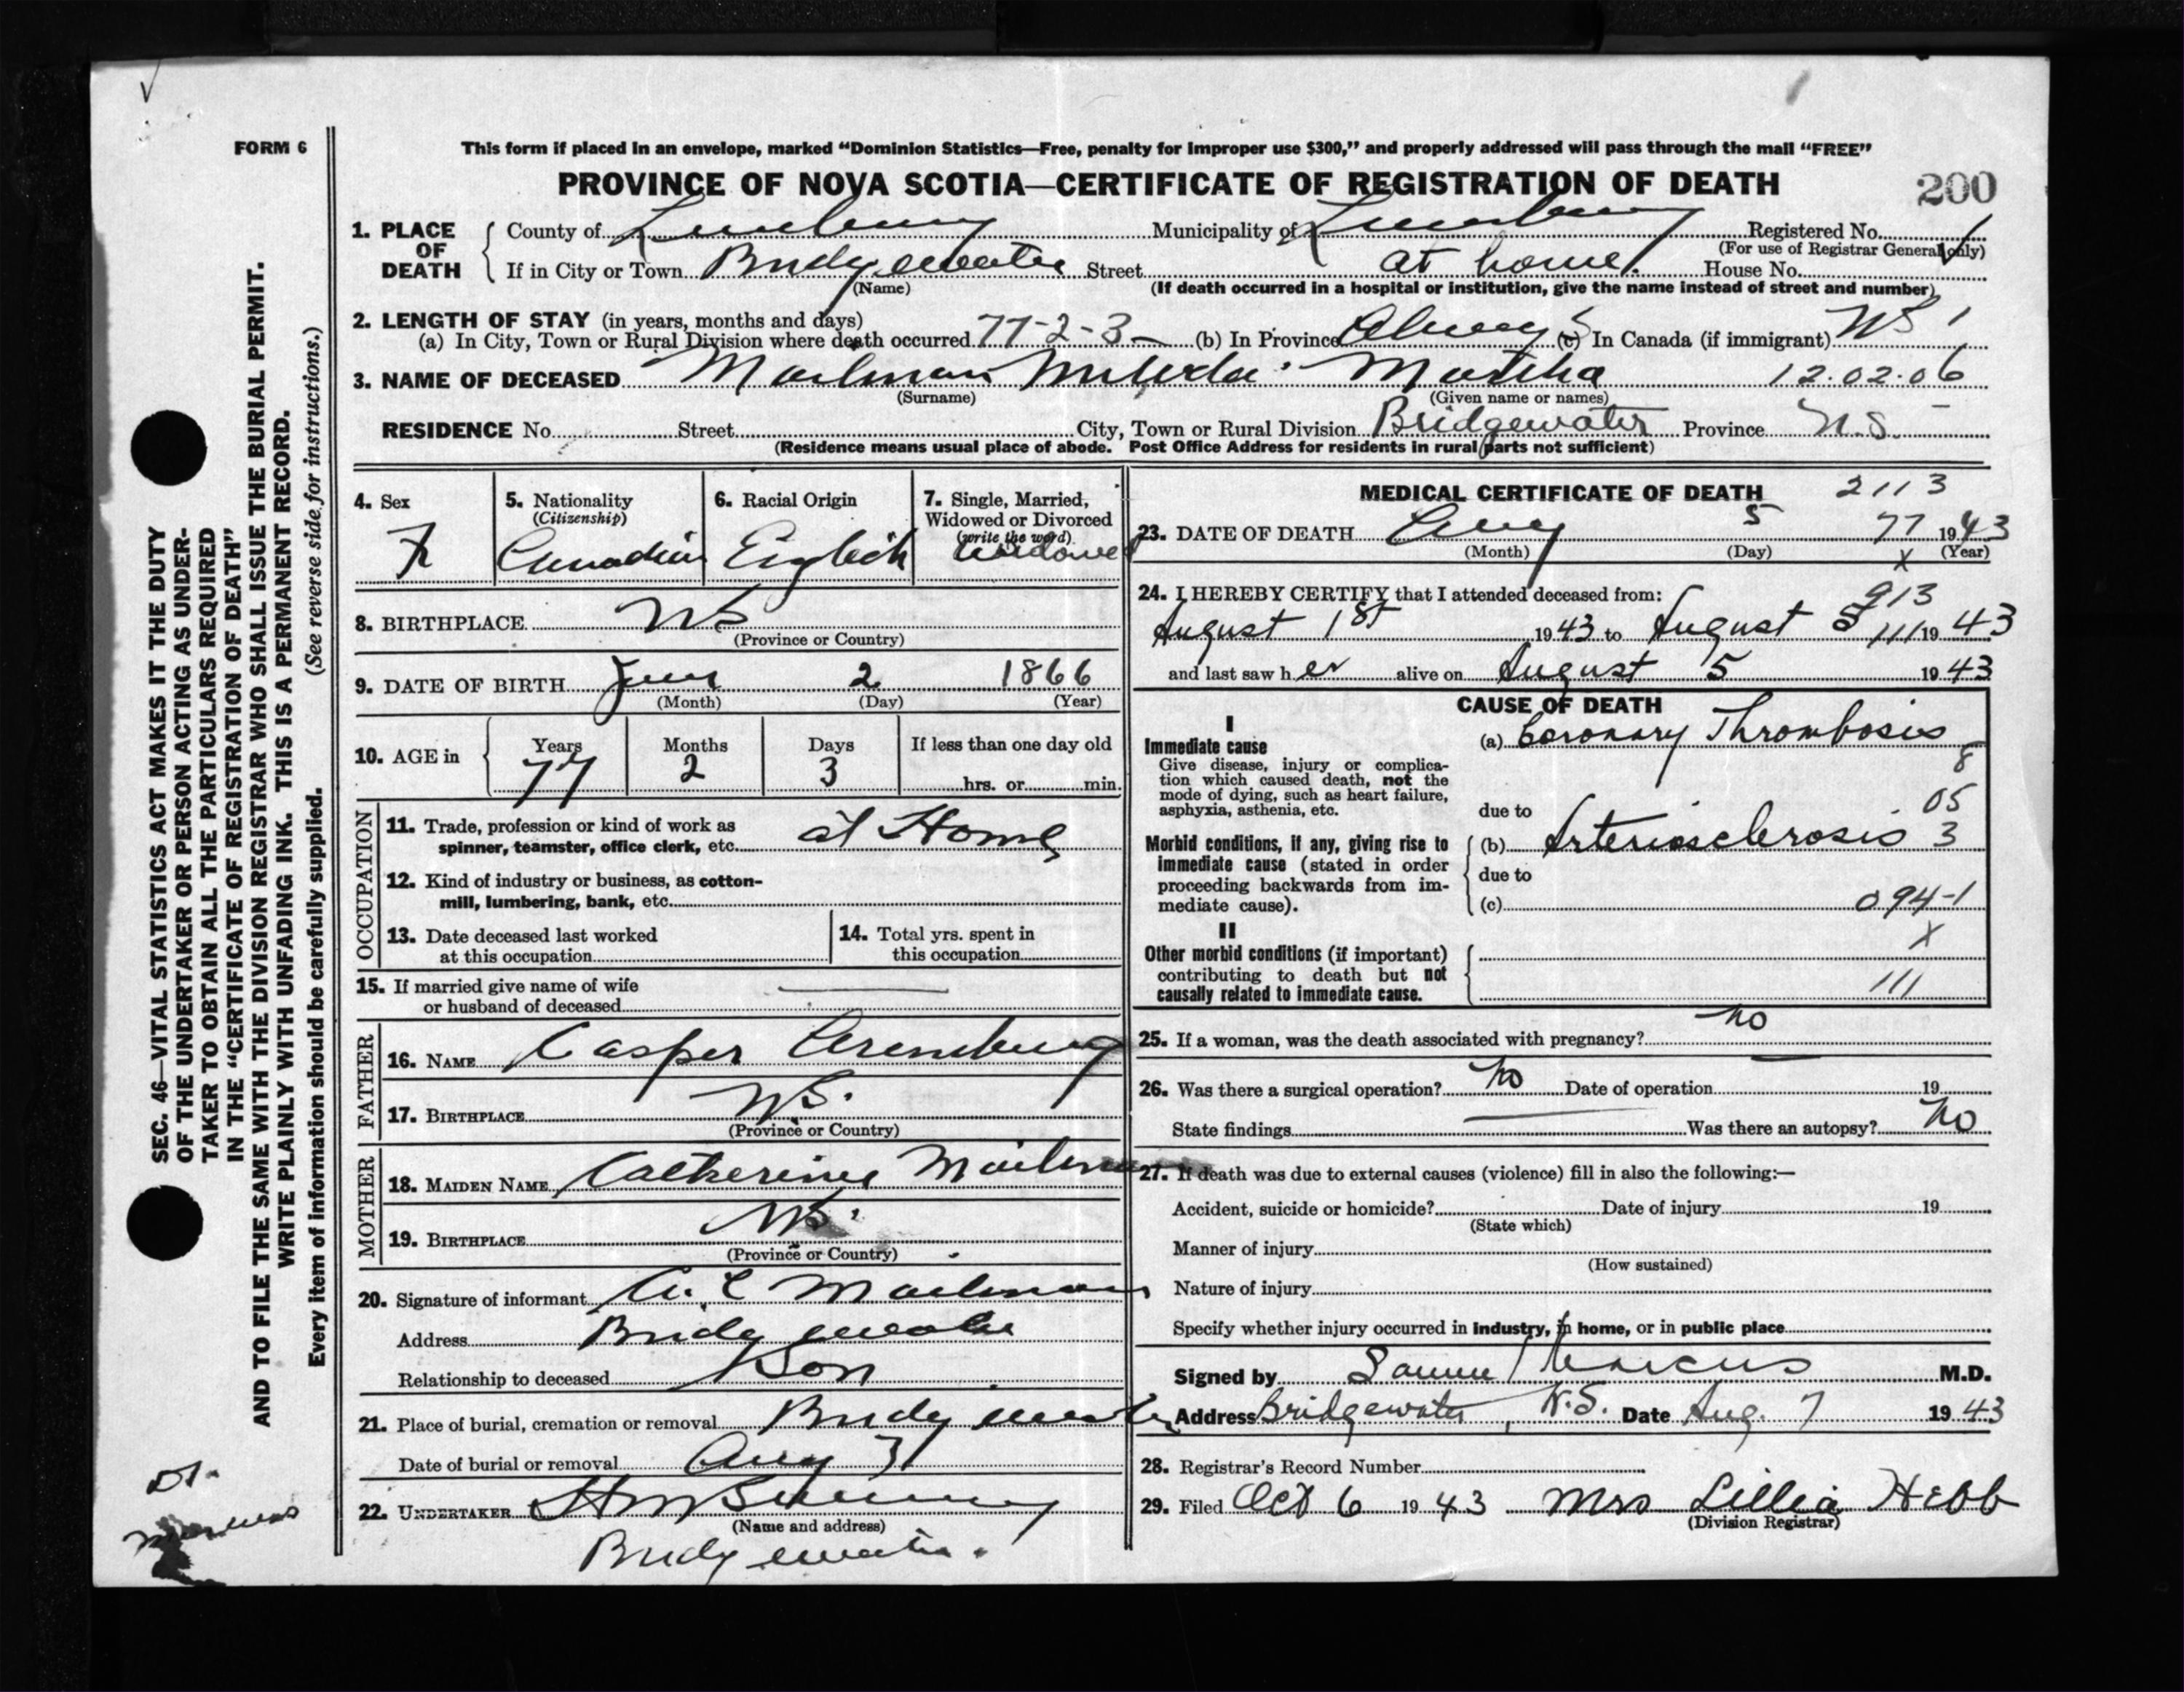 This form if placed in an envelope, marked “Dominion Statistics—Free, penalty for improper use $300,” and properly addressed will pass through the mail “FREE”
FORM 6
PROVINCE OF NOVA SCOTIA—CERTIFICATE OF REGISTRATION OF DEATH
200
1. PLACE OF DEATH
County of Lunenburg Municipality of Lunenburg Registered No.
(For use of Registrar General only)
If in City or Town Bridgewater Street at home. House No.
(Name) (If death occurred in a hospital or institution, give the name instead of street and number)
2. LENGTH OF STAY (in years, months and days)
(a) In City, Town or Rural Division where death occurred 77-2-3 (b) In Province Always (c) In Canada (if immigrant) NS
3. NAME OF DECEASED Mailman Martha 12.02.06
(Surname) (Given name or names)
RESIDENCE No. Street City, Town or Rural Division Bridgewater Province N.S.
(Residence means usual place of abode. Post Office Address for residents in rural parts not sufficient)
4. Sex
F
5. Nationality
(Citizenship)
Canadian
6. Racial Origin
English
7. Single, Married,
Widowed or Divorced
(write the word)
Widowed
8. BIRTHPLACE NS
(Province or Country)
9. DATE OF BIRTH June 2 1866
(Month) (Day) (Year)
10. AGE in
Years Months Days If less than one day old
77 2 3 hrs. or min.
OCCUPATION
11. Trade, profession or kind of work as
spinner, teamster, office clerk, etc. at Home
12. Kind of industry or business, as cotton-
mill, lumbering, bank, etc.
13. Date deceased last worked
at this occupation
14. Total yrs. spent in
this occupation
15. If married give name of wife
or husband of deceased
FATHER
16. NAME Casper
17. BIRTHPLACE NS.
(Province or Country)
MOTHER
18. MAIDEN NAME Catherine Mailman
19. BIRTHPLACE NS.
(Province or Country)
20. Signature of informant Mailman
Address Bridgewater
Relationship to deceased Son
21. Place of burial, cremation or removal Bridgewater
Date of burial or removal Aug 7
22. UNDERTAKER
(Name and address)
Bridgewater.
MEDICAL CERTIFICATE OF DEATH 2113
23. DATE OF DEATH Aug 5 77 1943
(Month) (Day) X (Year)
24. I HEREBY CERTIFY that I attended deceased from: 913
August 1st 1943 to August 5 111 1943
and last saw her alive on August 5 1943
CAUSE OF DEATH
I
Immediate cause
Give disease, injury or complica-
tion which caused death, not the
mode of dying, such as heart failure,
asphyxia, asthenia, etc.
(a) Coronary Thrombosis
8
due to 05
Morbid conditions, if any, giving rise to
immediate cause (stated in order
proceeding backwards from im-
mediate cause).
(b) Arteriosclerosis 3
due to
(c) 094-1
II X
Other morbid conditions (if important)
contributing to death but not
causally related to immediate cause.
111
25. If a woman, was the death associated with pregnancy? no
26. Was there a surgical operation? no Date of operation 19
State findings Was there an autopsy? no
27. If death was due to external causes (violence) fill in also the following:—
Accident, suicide or homicide? Date of injury 19
(State which)
Manner of injury
(How sustained)
Nature of injury
Specify whether injury occurred in industry, in home, or in public place
Signed by Marcus M.D.
Address Bridgewater, N.S. Date Aug. 7 1943
28. Registrar’s Record Number
29. Filed Oct 6 1943 Mrs Lillia Hebb
(Division Registrar)
SEC. 46—VITAL STATISTICS ACT MAKES IT THE DUTY
OF THE UNDERTAKER OR PERSON ACTING AS UNDER-
TAKER TO OBTAIN ALL THE PARTICULARS REQUIRED
IN THE “CERTIFICATE OF REGISTRATION OF DEATH”
AND TO FILE THE SAME WITH THE DIVISION REGISTRAR WHO SHALL ISSUE THE BURIAL PERMIT.
WRITE PLAINLY WITH UNFADING INK. THIS IS A PERMANENT RECORD.
Every item of information should be carefully supplied. (See reverse side for instructions.)
Dr.
Marcus